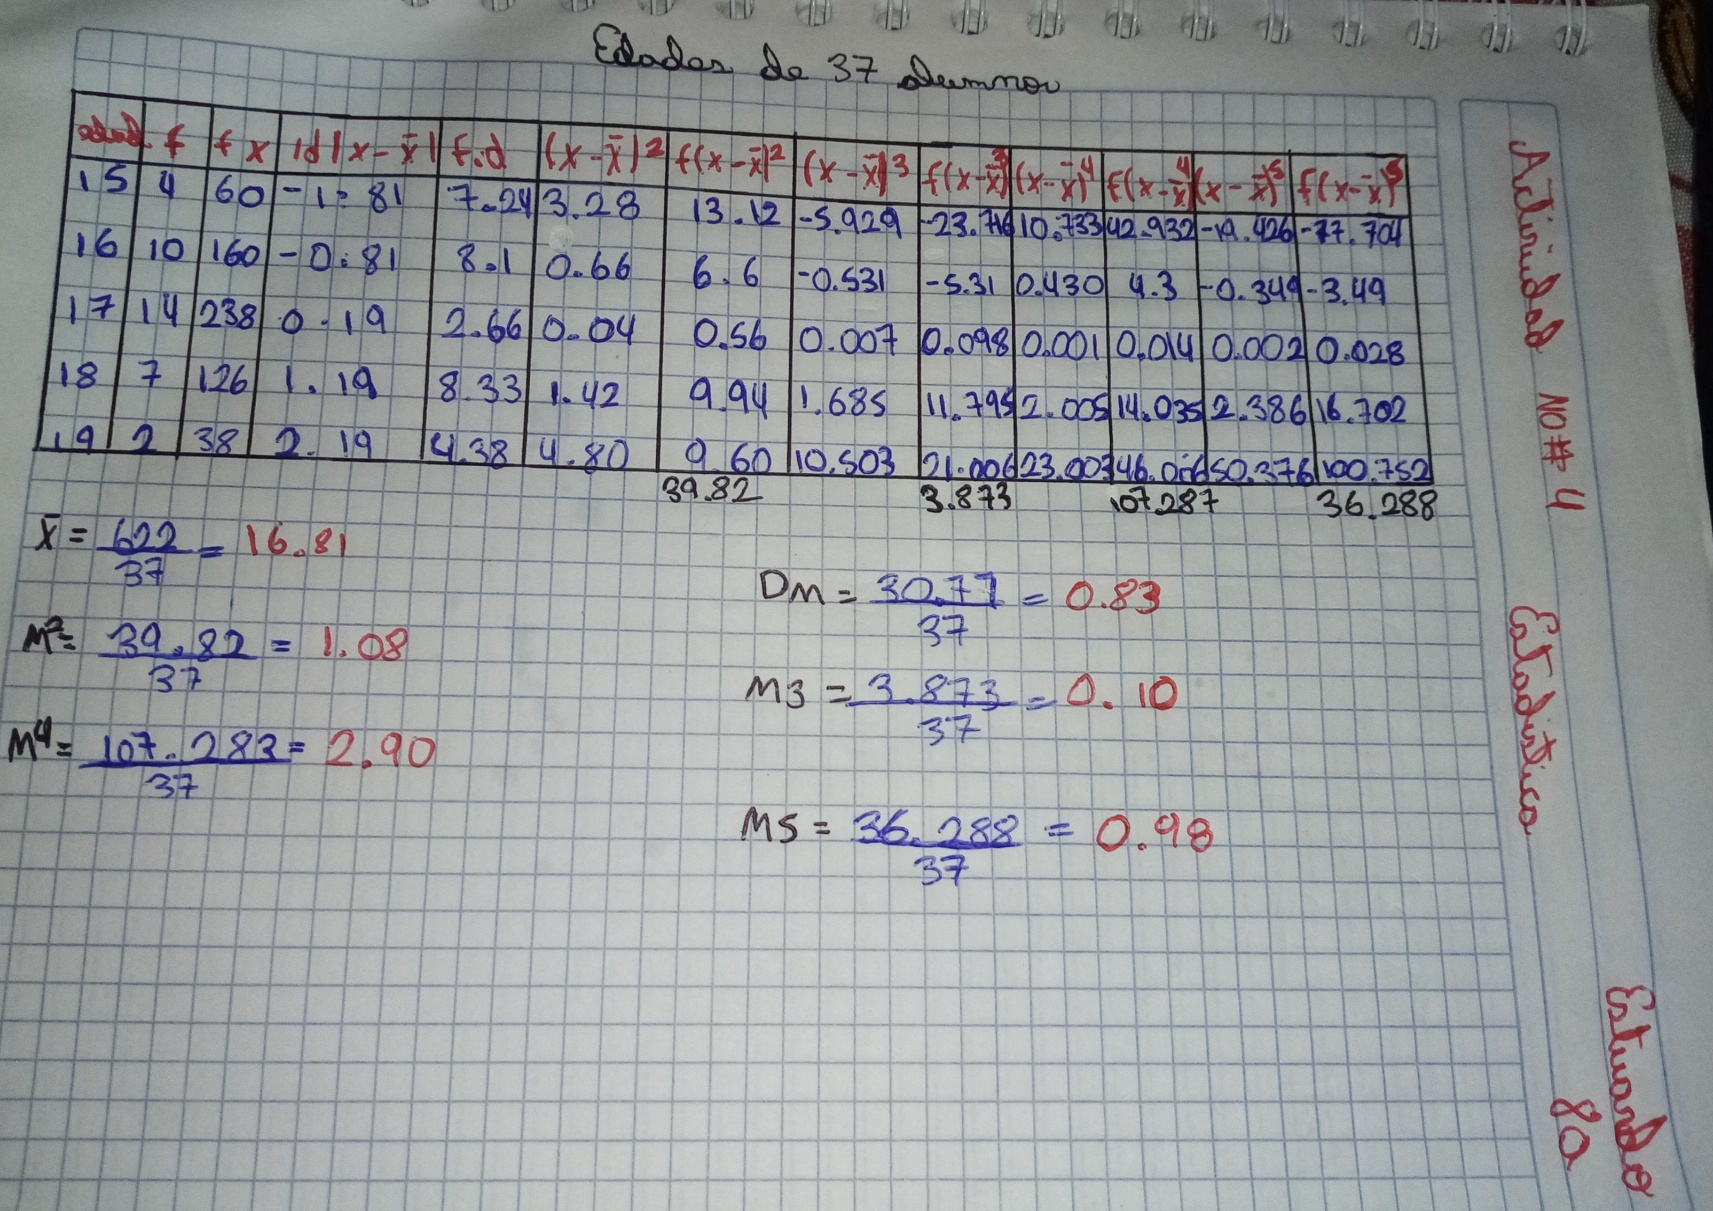 Edades de 37 alumnos
edad f fx |d|x-x̄| f.d (x-x̄)² f(x-x̄)² (x-x̄)³ f(x-x̄)³ (x-x̄)⁴ f(x-x̄)⁴ (x-x̄)⁵ f(x-x̄)⁵
15 4 60 -1.81 7.24 3.28 13.12 -5.929 -23.716 10.733 42.932 -19.426 -77.704
16 10 160 -0.81 8.1 0.66 6.6 -0.531 -5.31 0.430 4.3 -0.349 -3.49
17 14 238 0.19 2.66 0.04 0.56 0.007 0.098 0.001 0.014 0.002 0.028
18 7 126 1.19 8.33 1.42 9.94 1.685 11.795 2.005 14.035 2.386 16.702
19 2 38 2.19 4.38 4.80 9.60 10.503 21.006 23.003 46.006 50.376 100.752
39.82 3.873 107.287 36.288
x̄ = 622/37 = 16.81
Dm = 30.71/37 = 0.83
M² = 39.82/37 = 1.08
M3 = 3.873/37 = 0.10
M⁴ = 107.283/37 = 2.90
M5 = 36.288/37 = 0.98
Actividad NO# 4 Estadistica
Estuardo
80